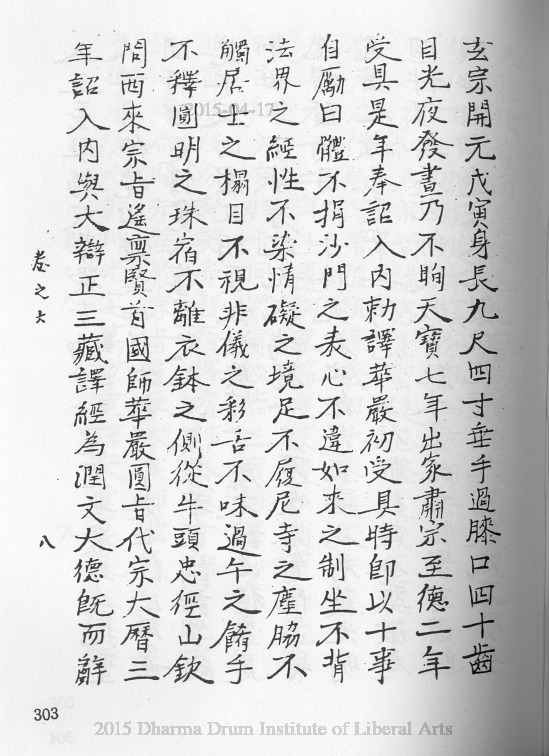 玄宗開元戊寅身長九尺四寸垂手過膝口四十齒
目光夜發晝乃不眴天寶七年出家肅宗至德二年
受具是年奉詔入內勅譯華嚴初受具時即以十事
自勵曰體不捐沙門之表心不違如來之制坐不背
法界之經性不染情礙之境足不履尼寺之塵脇不
觸居士之榻目不視非儀之彩舌不味過午之餚手
不釋圓明之珠宿不離衣鉢之側從牛頭忠徑山欽
問西來宗旨遙稟賢首國師華嚴圓旨代宗大曆三
年詔入內與大辯正三藏譯經為潤文大德既而辭
卷之六
八
303
2015-04-17
2015 Dharma Drum Institute of Liberal Arts